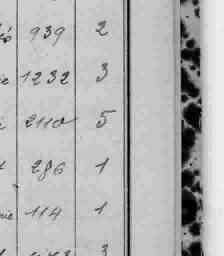 939 2
1232 3
2110 5
286 1
114 1
3